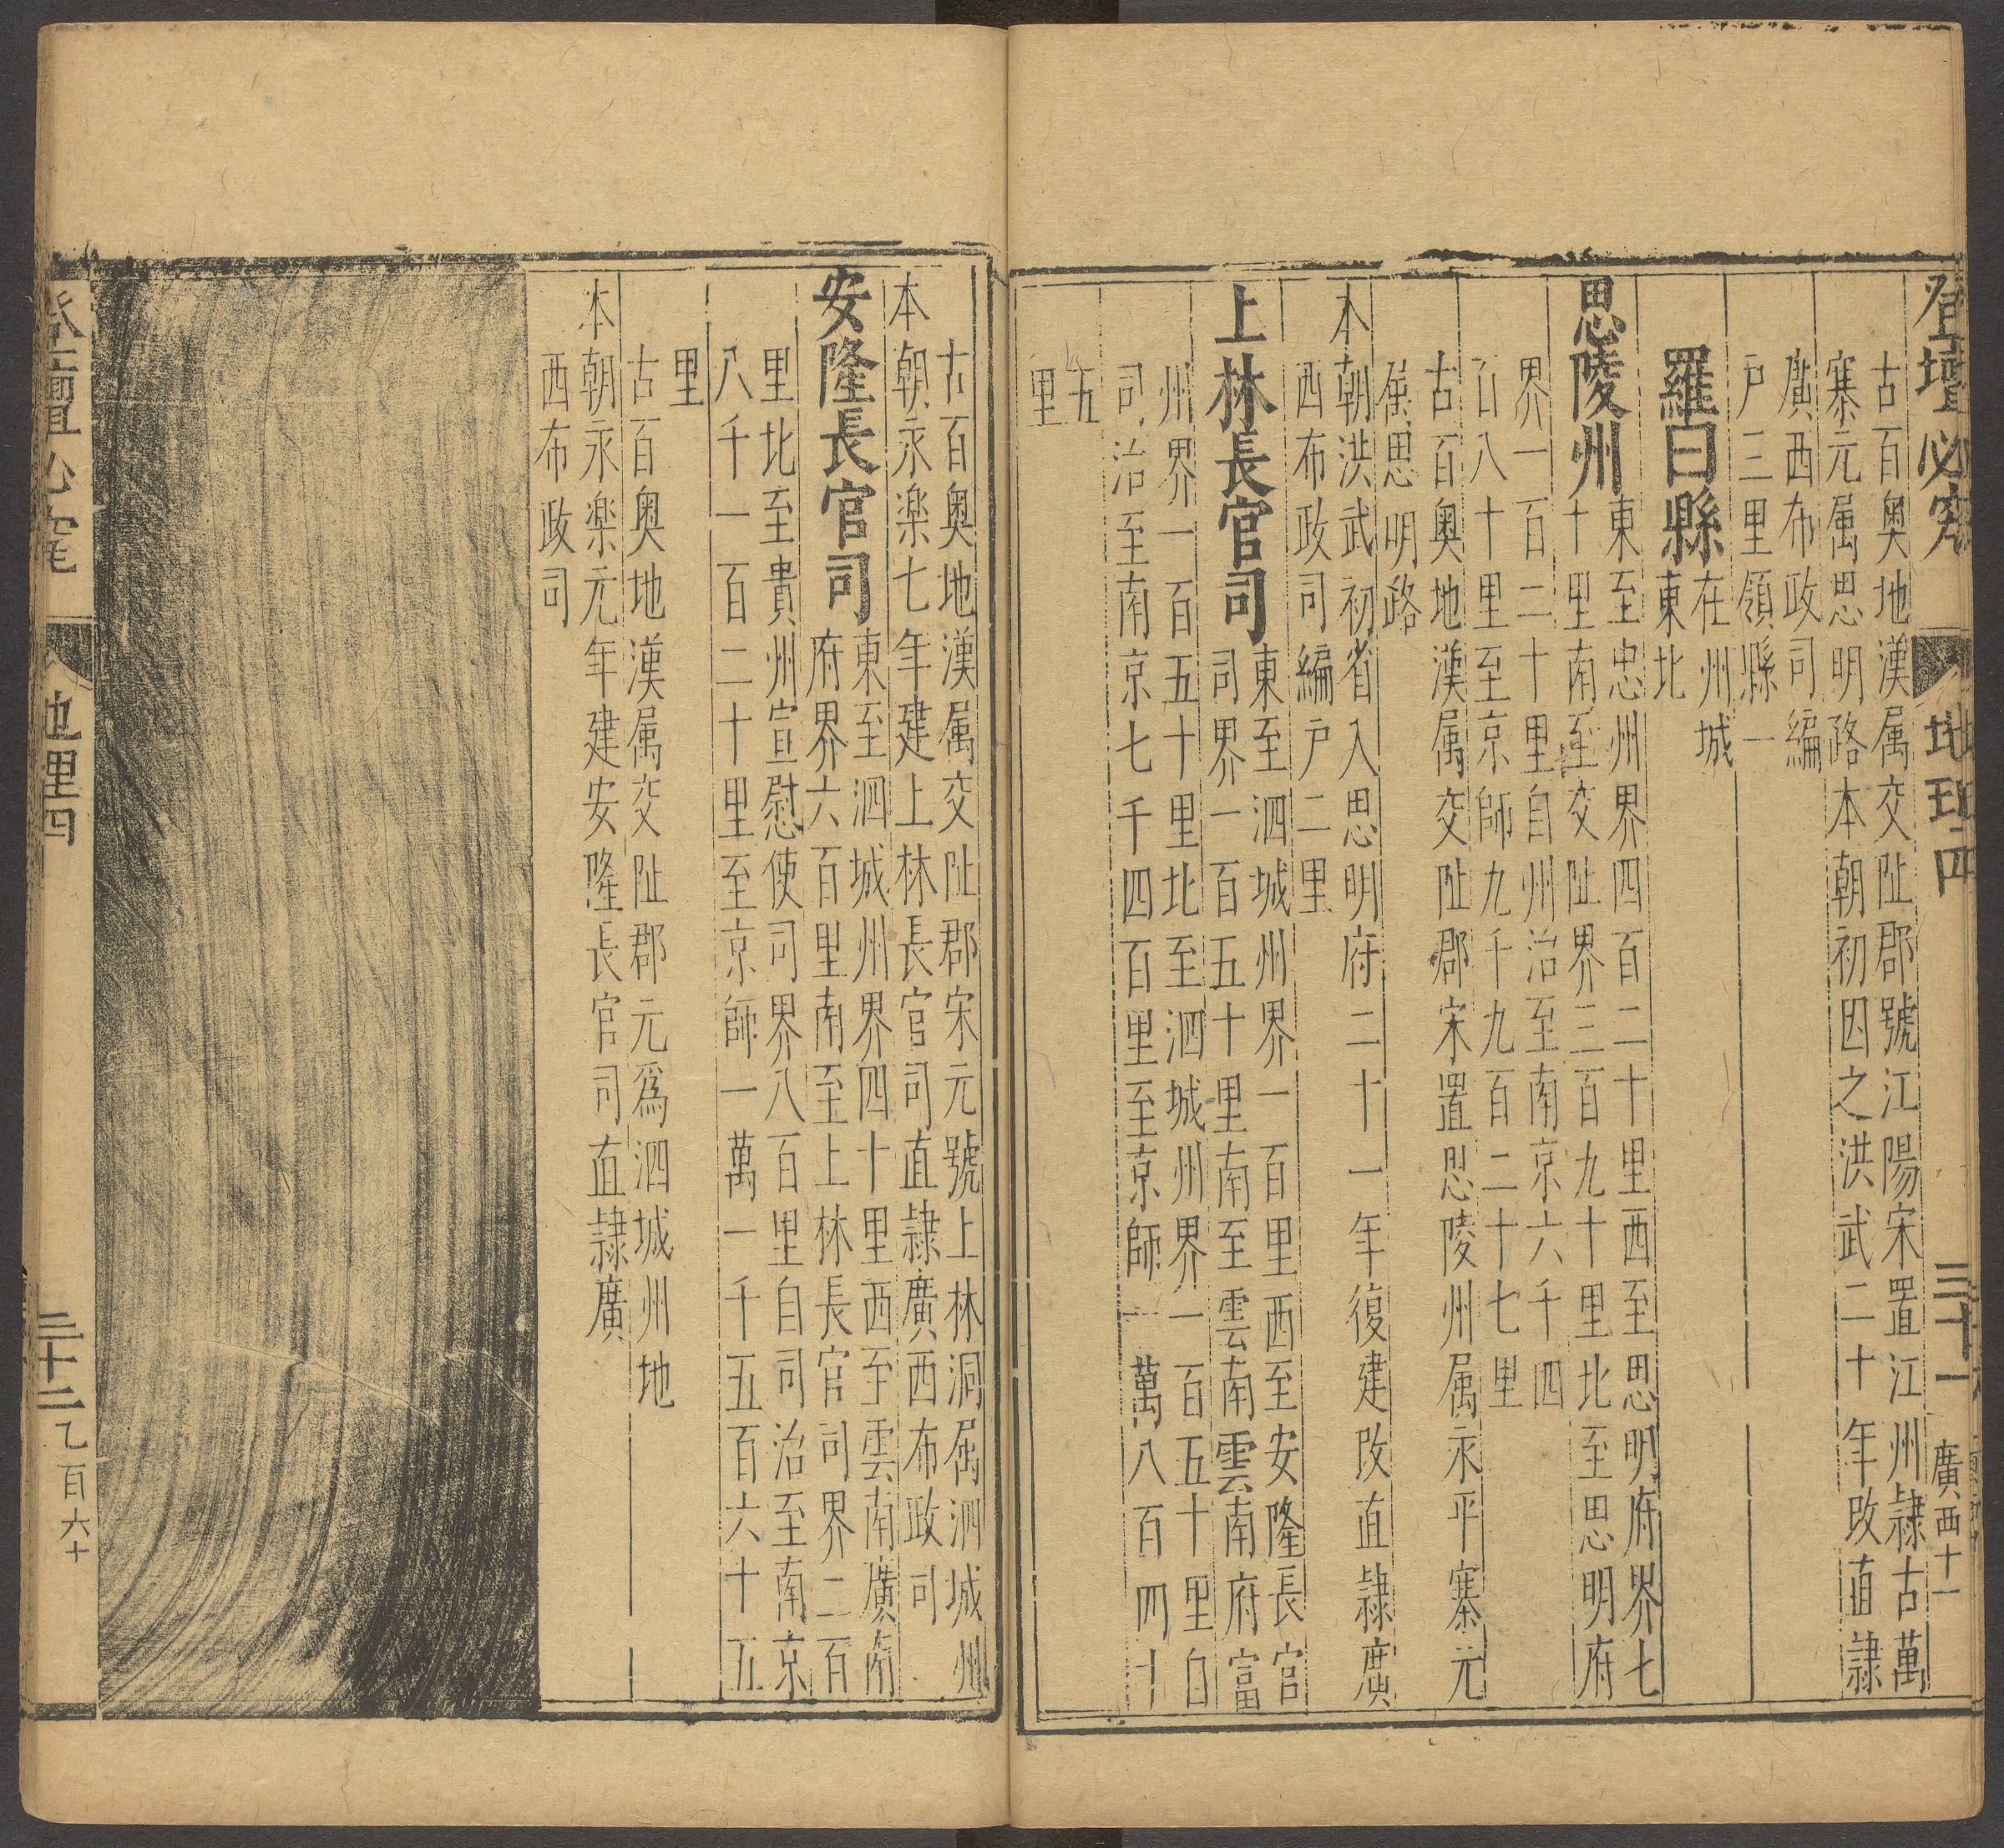 登壇必究 地理四 三十一 廣西十一
古百奥地漢属交阯郡號江陽宋置江州隷古萬
寨元属思明路本朝初因之洪武二十年改直隷
廣西布政司編
戸三里領縣一
羅白縣在州城
東北
思陵州東至忠州界四百二十里西至思明府界七
十里南至交阯界三百九十里北至思明府
界一百二十里自州治至南京六千四
百八十里至京師九千九百二十七里
古百奥地漢属交阯郡宋置思陵州属永平寨元
属思明路
本朝洪武初省入思明府二十一年復建改直隷廣
西布政司編戸二里
上林長官司東至泗城州界一百里西至安隆長官
司界一百五十里南至雲南雲南府富
州界一百五十里北至泗城州界一百五十里自
司治至南京七千四百里至京師一萬八百四十
五
里
古百奥地漢属交阯郡宋元號上林洞属泗城州
本朝永楽七年建上林長官司直隷廣西布政司
安隆長官司東至泗城州界四十里西至雲南廣南
府界六百里南至上林長官司界二百
里北至貴州宣慰使司界八百里自司治至南京
八千一百二十里至京師一萬一千五百六十五
里
古百奥地漢属交阯郡元爲泗城州地
本朝永楽元年建安隆長官司直隷廣
西布政司
登壇必究 地理四 三十二 乙百六十